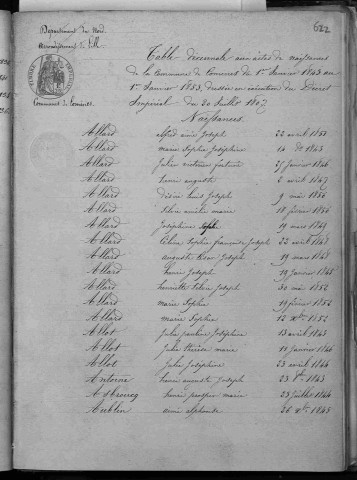 622
Département du Nord.
Arrondissement de Lille
Commune de Comines.
Table décennale aux actes de naissances
de la Commune de Comines du 1er Janvier 1843 au
1er Janvier 1853, dressée en exécution du Décret
Impérial du 20 Juillet 1807.
Naissances.
Allard alfred aimé Joseph 22 avril
Allard marie Sophie Joséphine 1843
Allard Julie victoire 27 Janvier 1846
Allard henri auguste 2 avril 1847
Allard désiré louis Joseph 9 mai
Allard marie 18 février
Allard Joséphine Sophie 19 mars 1849
Allard Céline Sophie françoise Joseph 22 avril
Allard auguste Joseph 19 mars
Allard henri Joseph 19 Janvier 1848
Allard henriette Joseph 30 mai 1852
Allard marie Sophie 19 février 1852
Allard marie Sophie 12 Xbre 1852
Allot Julie pauline Joséphine 13 avril 1843
Allot Julie thérèse marie 12 Janvier 1846
Allot Julie Joséphine 23 avril 1844
Antoine henri auguste Joseph 23 1843
henri prosper marie 25 Juillet 1844
Aublin aimé alphonse 26 1845